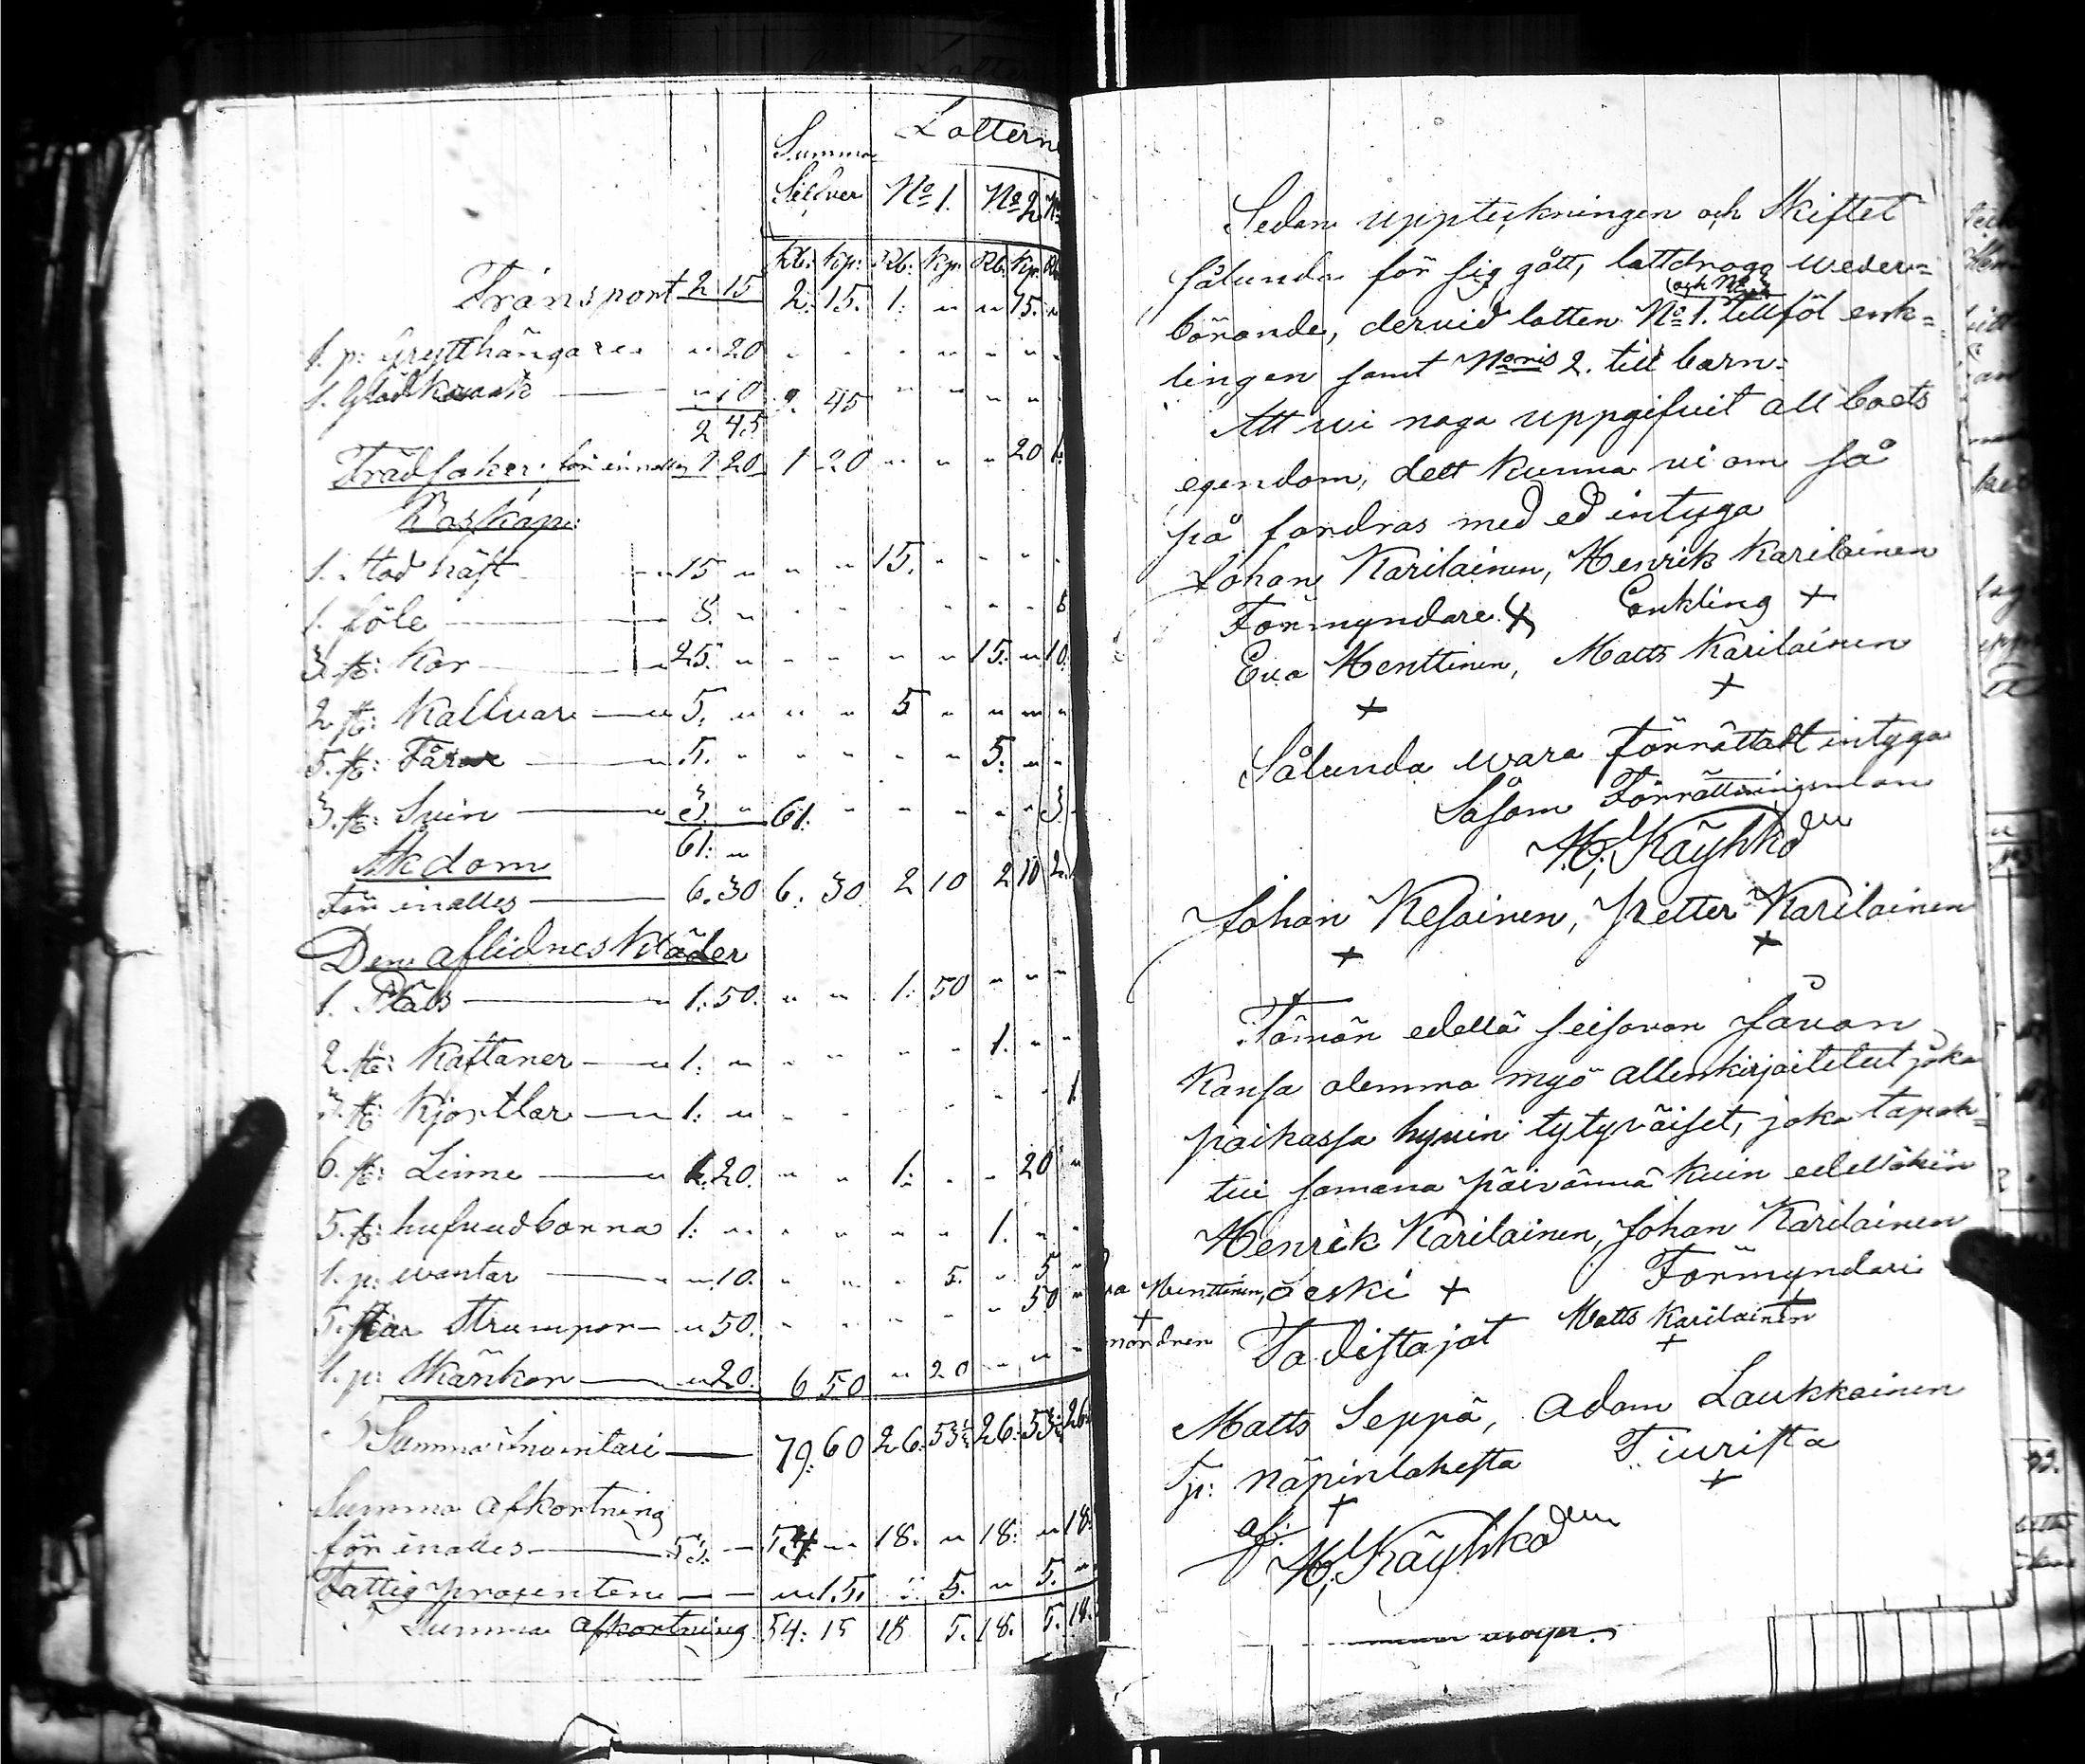 Summa Lottern
Sillver No 1. No 2
Rb: Kp: Rb: Kp: Rb: Kp:
Transport 2 15 2. 15. 1: " " 15.
1. p: Grytthängare " 20 " " " " " "
1. Glödkraak " 10 2. 45 " " " "
2 45
Trädsaker: för einalles 1 20 1 20 " " " 20
Boskap:
1. Stod häst " 15 " " " 15. " " "
1. föle 8. " " " " " " "
3. st: Kor " 25. " " " " " 15. " 10.
2 st: Kallvar " 5. " " " 5 " " " "
5. st: Fårar " 5. " " " " " 5. " "
3. st: Svin " 3. " 61: " " " " " 3
61: "
Åkdom
För inalles 6. 30 6. 30 2 10 2 10 2.
Den aflidnes Kläder
1. Päls " 1: 50. " " 1: 50 " " "
2. st: Kaftaner " 1: " " " " " 1. " "
3. st: Kjortlar " 1: " " " " " " " 1
6. st: Linne " 1: 20. " " 1: " " 20 "
5. st: hufvudbonna 1: " " " " " 1. " "
1. p: wantar " 10. " " " 5. " 5 "
5. Par Strumpor " 50. " " " " " 50 "
1. p: Skänkor " 20. 6 50 " 20 " " "
Summa Inventari 79: 60 26. 53 1/3 26. 53 1/3 26
Summa afkortning
för inalles 53. 54 " 18. " 18: " 18
Fattig prosenten " 15. " 5. " 5. "
Summa afkortning 54: 15 18 5. 18. 5. 18.
Sedan uppteckningen och Skiftet
sålunda för sig gått, lattdroga weder=
och No 3
börande, dervid lotten No 1. tillföl enk=
lingen samt Noris 2. till barn:
Att wi noga uppgifvit all boets
egendom, dett kunna vi om så
på fordras med ed intyga
Johan Karilainen, Henrik Karilainen
Förmyndare + Enkling +
Eva Henttinen, Matts Karilainen
+ +
Sålunda wara förrättatt intyga
Såsom Förrättningsman
H. Käyhkö
Johan Kesainen, Petter Karilainen
+ +
Tämän edellä seisovan
Kansa olemma myö allenkirjoitetut joka
paikassa hyvin tytyväiset, joka tapah=
tui samana päivännä kuin edelläkin
Henrik Karilainen, Johan Karilainen
Henttinen, Leski + Förmyndare
+ Matts Karilainen
Todistajat +
Matts Seppä, Adam Laukkainen
Näpinlahesta Tiurista
+ +
H. Käyhkö